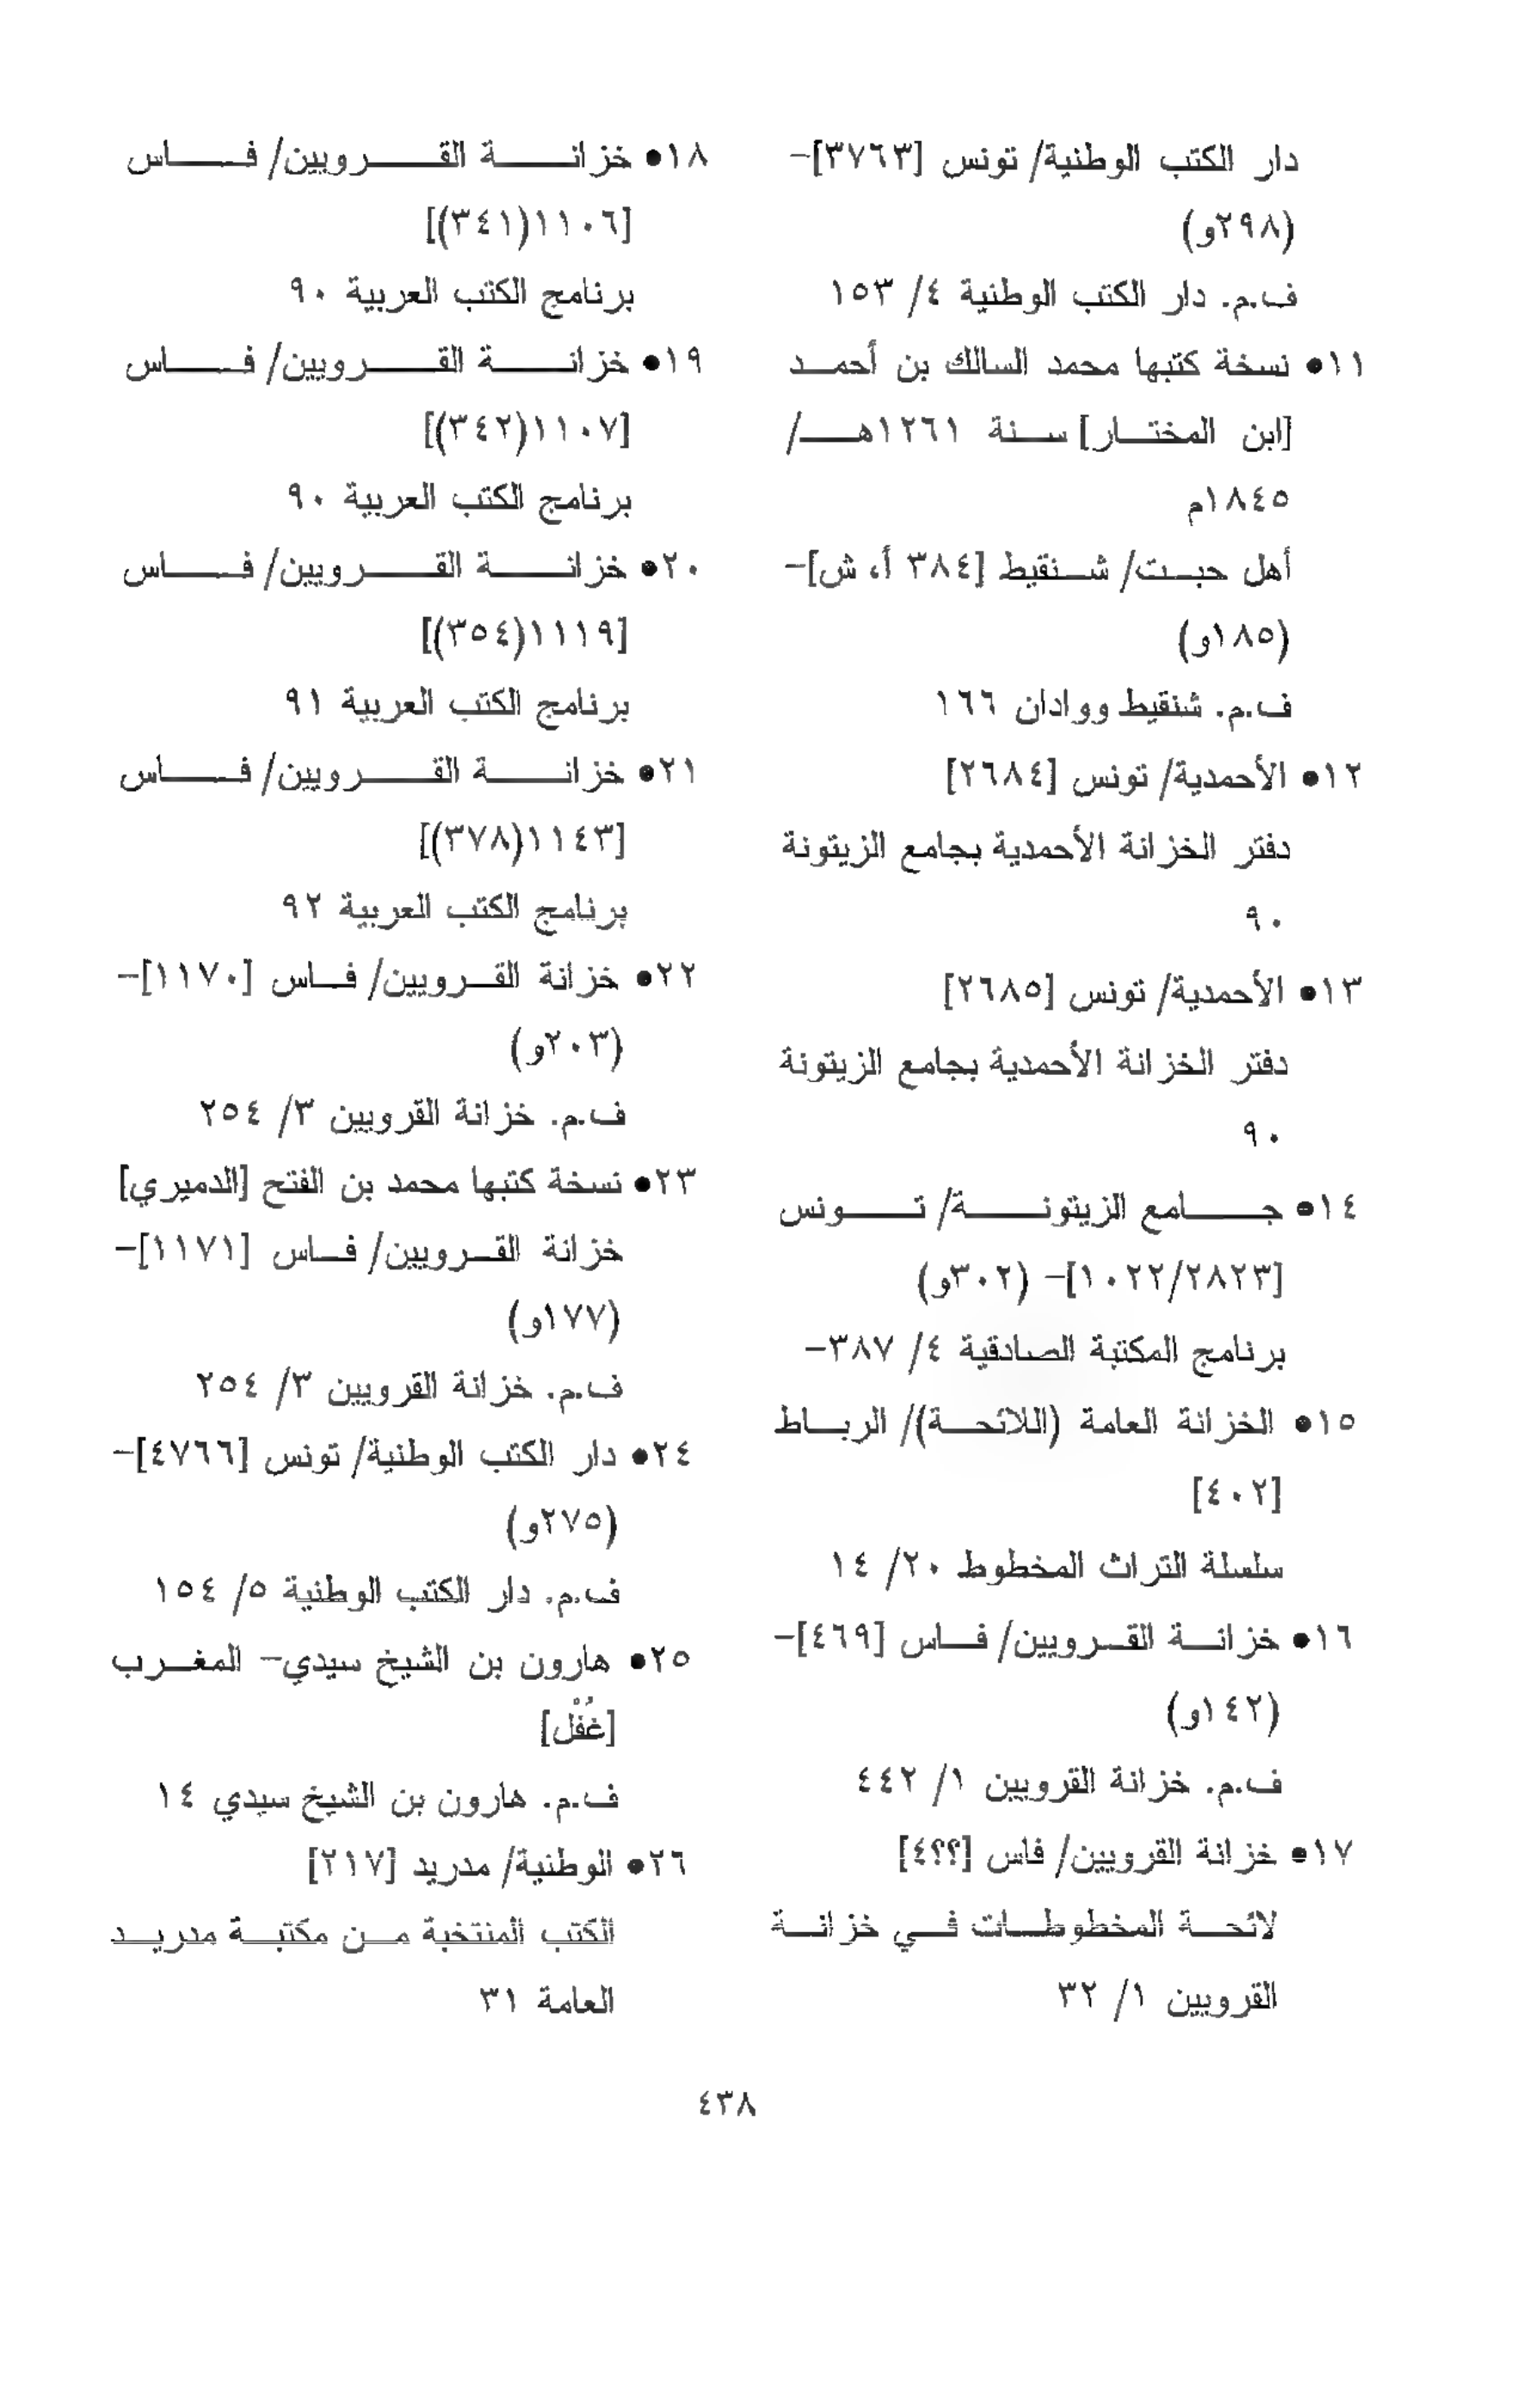 دار الكتب الوطنية/ تونس [٣٧٦٣]-
(٢٩٨و)
ف.م. دار الكتب الوطنية ٤/ ١٥٣
١١• نسخة كتبها محمد السالك بن أحمد
[ابن المختار] سنة ١٢٦١هـ/
١٨٤٥م
أهل حبت/ شنقيط [٣٨٤ أ، ش]-
(١٨٥و)
ف.م. شنقيط ووادان ١٦٦
١٢• الأحمدية/ تونس [٢٦٨٤]
دفتر الخزانة الأحمدية بجامع الزيتونة
٩٠
١٣• الأحمدية/ تونس [٢٦٨٥]
دفتر الخزانة الأحمدية بجامع الزيتونة
٩٠
١٤• جامع الزيتونة/ تونس
[١٠٢٢/٢٨٢٣]- (٣٠٢و)
برنامج المكتبة الصادقية ٤/ ٣٨٧-
١٥• الخزانة العامة (اللائحة)/ الرباط
[٤٠٢]
سلسلة التراث المخطوط ٢٠/ ١٤
١٦• خزانة القرويين/ فاس [٤٦٩]-
(١٤٢و)
ف.م. خزانة القرويين ١/ ٤٤٢
١٧• خزانة القرويين/ فاس [؟؟٤]
لائحة المخطوطات في خزانة
القرويين ١/ ٣٢
١٨• خزانة القرويين/ فاس
[١١٠٦(٣٤١)]
برنامج الكتب العربية ٩٠
١٩• خزانة القرويين/ فاس
[١١٠٧(٣٤٢)]
برنامج الكتب العربية ٩٠
٢٠• خزانة القرويين/ فاس
[١١١٩(٣٥٤)]
برنامج الكتب العربية ٩١
٢١• خزانة القرويين/ فاس
[١١٤٣(٣٧٨)]
برنامج الكتب العربية ٩٢
٢٢• خزانة القرويين/ فاس [١١٧٠]-
(٢٠٣و)
ف.م. خزانة القرويين ٣/ ٢٥٤
٢٣• نسخة كتبها محمد بن الفتح [الدميري]
خزانة القرويين/ فاس [١١٧١]-
(١٧٧و)
ف.م. خزانة القرويين ٣/ ٢٥٤
٢٤• دار الكتب الوطنية/ تونس [٤٧٦٦]-
(٢٧٥و)
ف.م. دار الكتب الوطنية ٥/ ١٥٤
٢٥• هارون بن الشيخ سيدي- المغرب
[غُفْل]
ف.م. هارون بن الشيخ سيدي ١٤
٢٦• الوطنية/ مدريد [٢١٧]
الكتب المنتخبة من مكتبة مدريد
العامة ٣١
٤٣٨